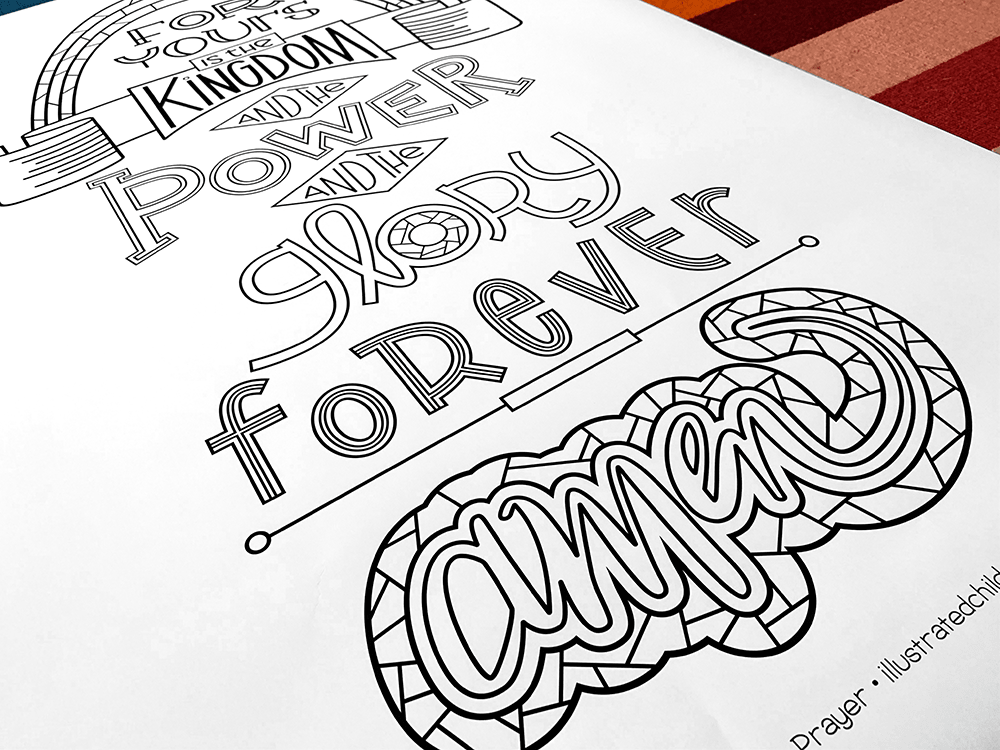 FOR
YOURS
is the
KINGDOM
AND the
POWER
AND the
glory
foRever
amen
Prayer • illustratedchild